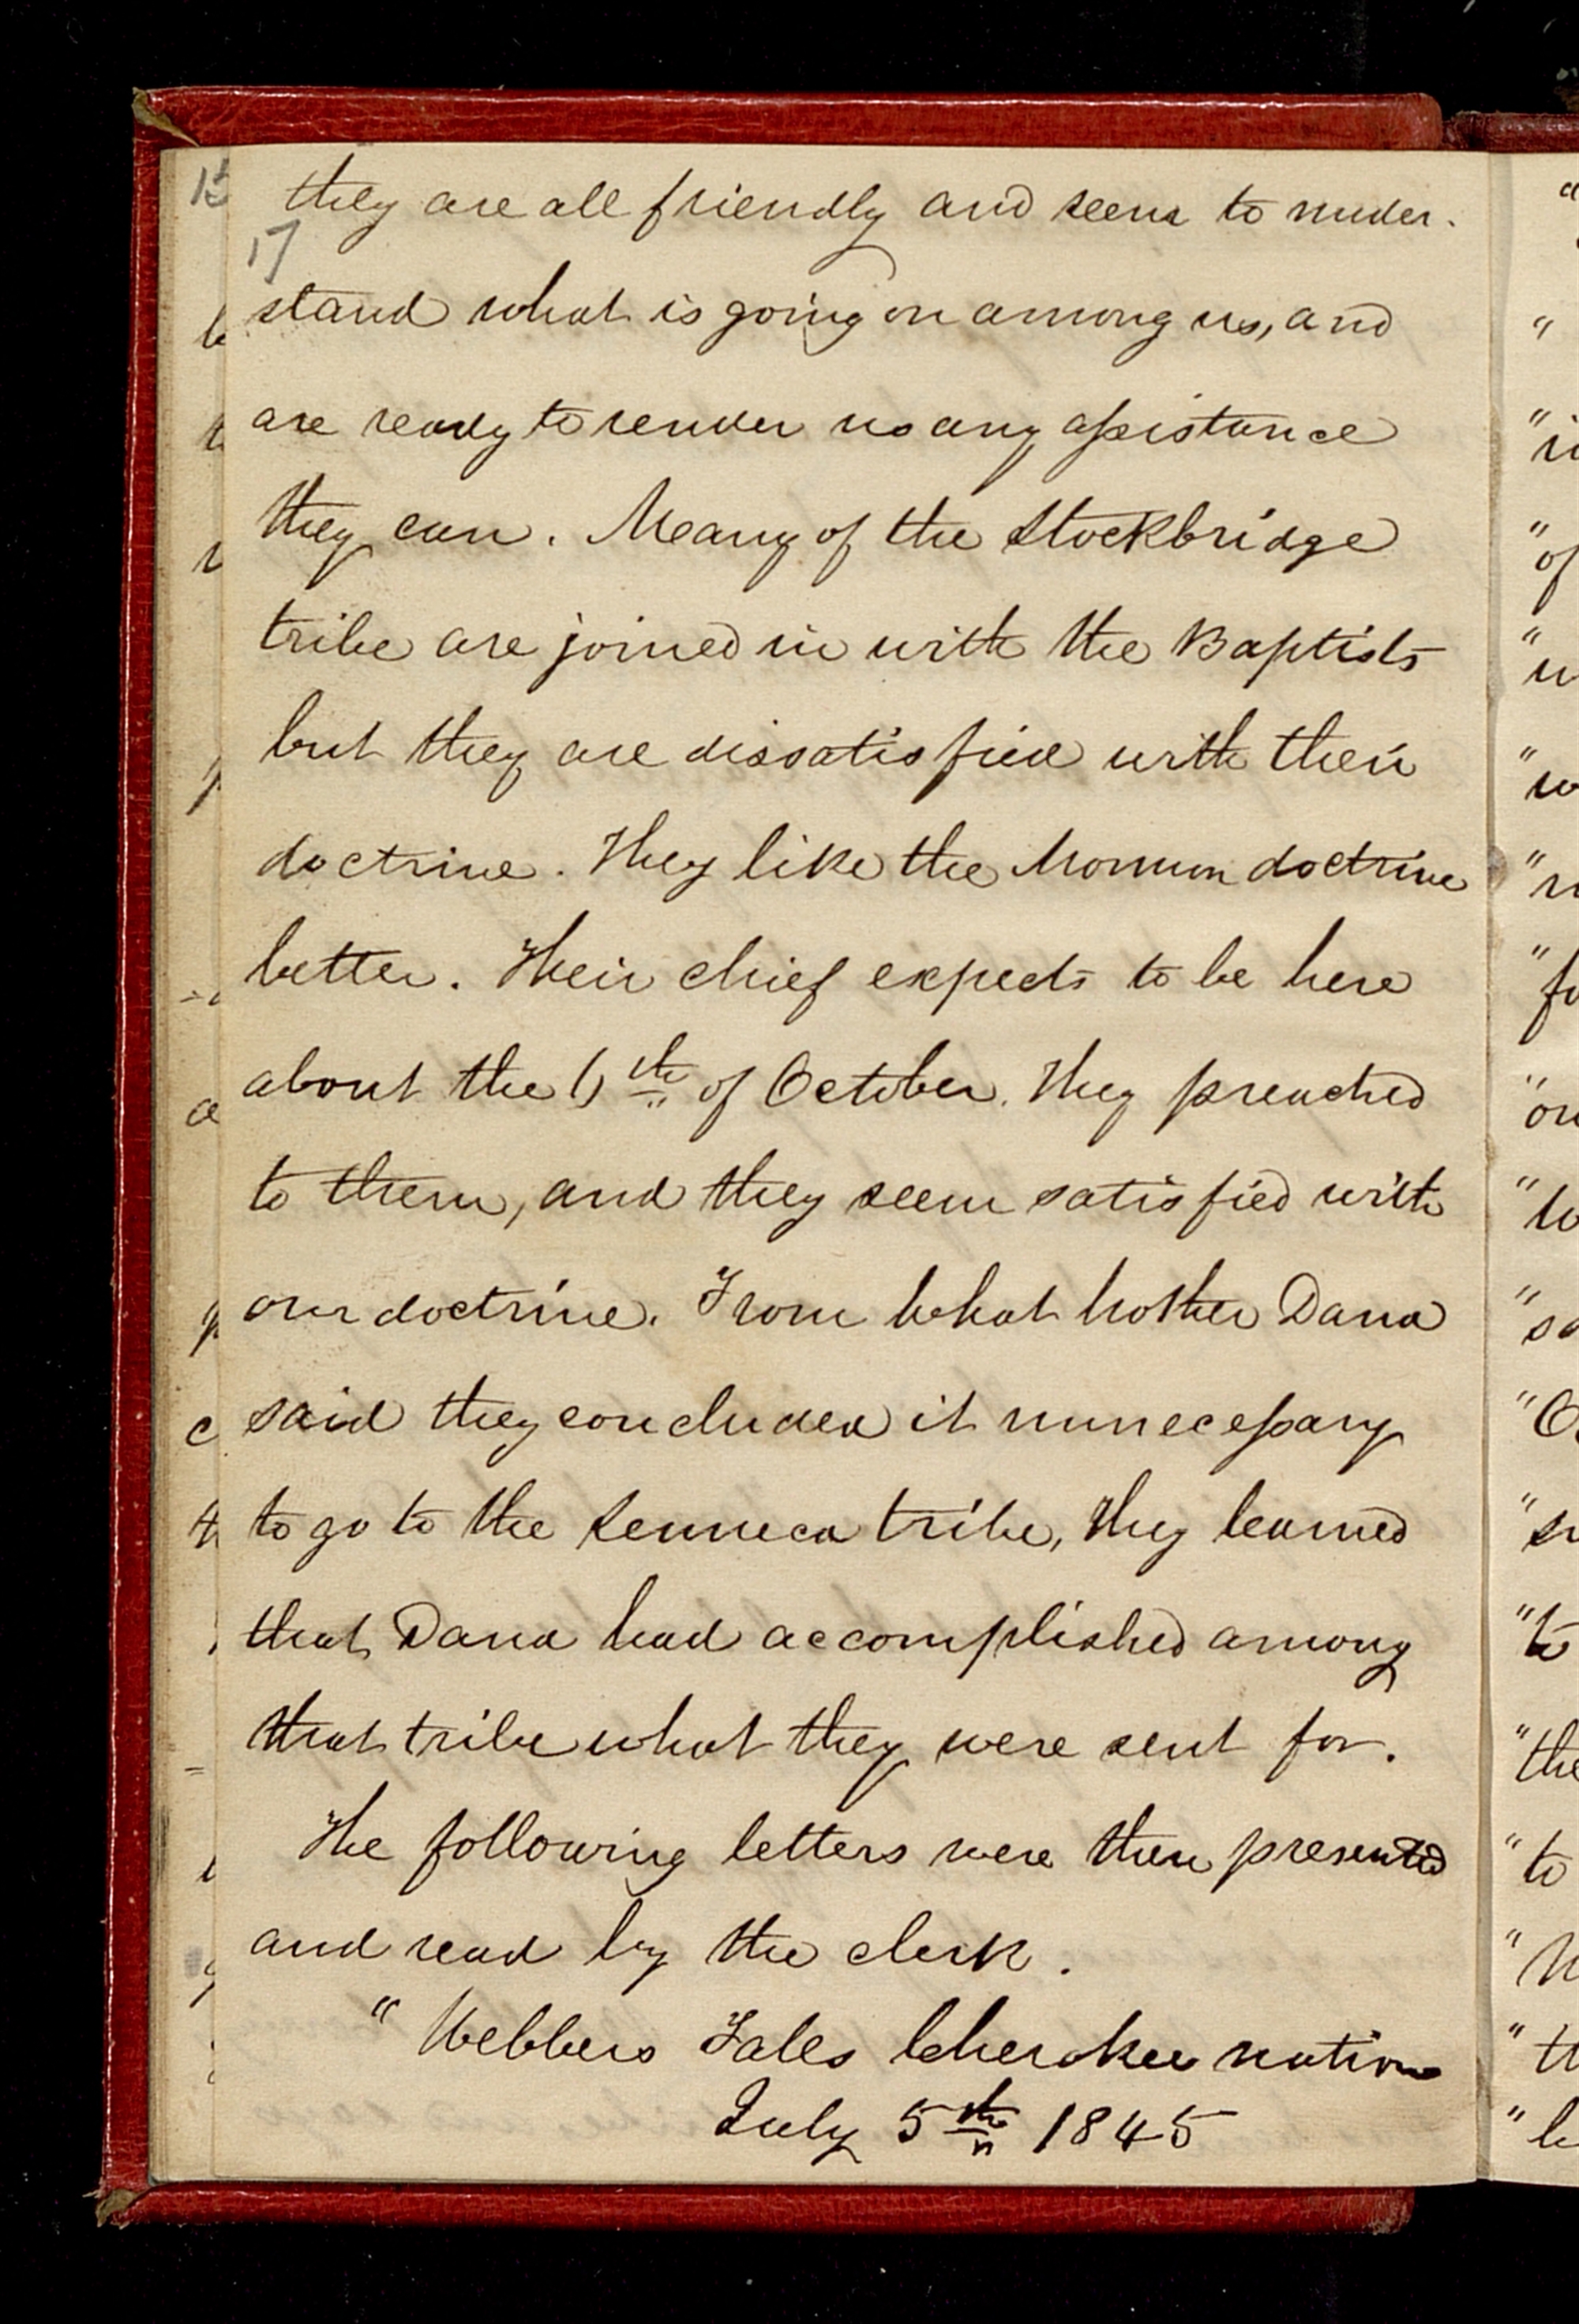 they are all friendly and seem to under-
17
stand what is going on among us, and
are ready to render us any assistance
they can. Many of the Stockbridge
tribe are joined in with the Baptists
but they are dissatisfied with their
doctrine. They like the Mormon doctrine
better. Their chief expects to be here
about the 6th of October. They preached
to them, and they seem satisfied with
our doctrine. From what brother Dana
said they concluded it unnecessary
to go to the Senneca tribe, they learned
that Dana had accomplished among
that tribe what they were sent for.
The following letters were then presented
and read by the clerk.
"Webbers Fales Cherokee nation
July 5th 1845